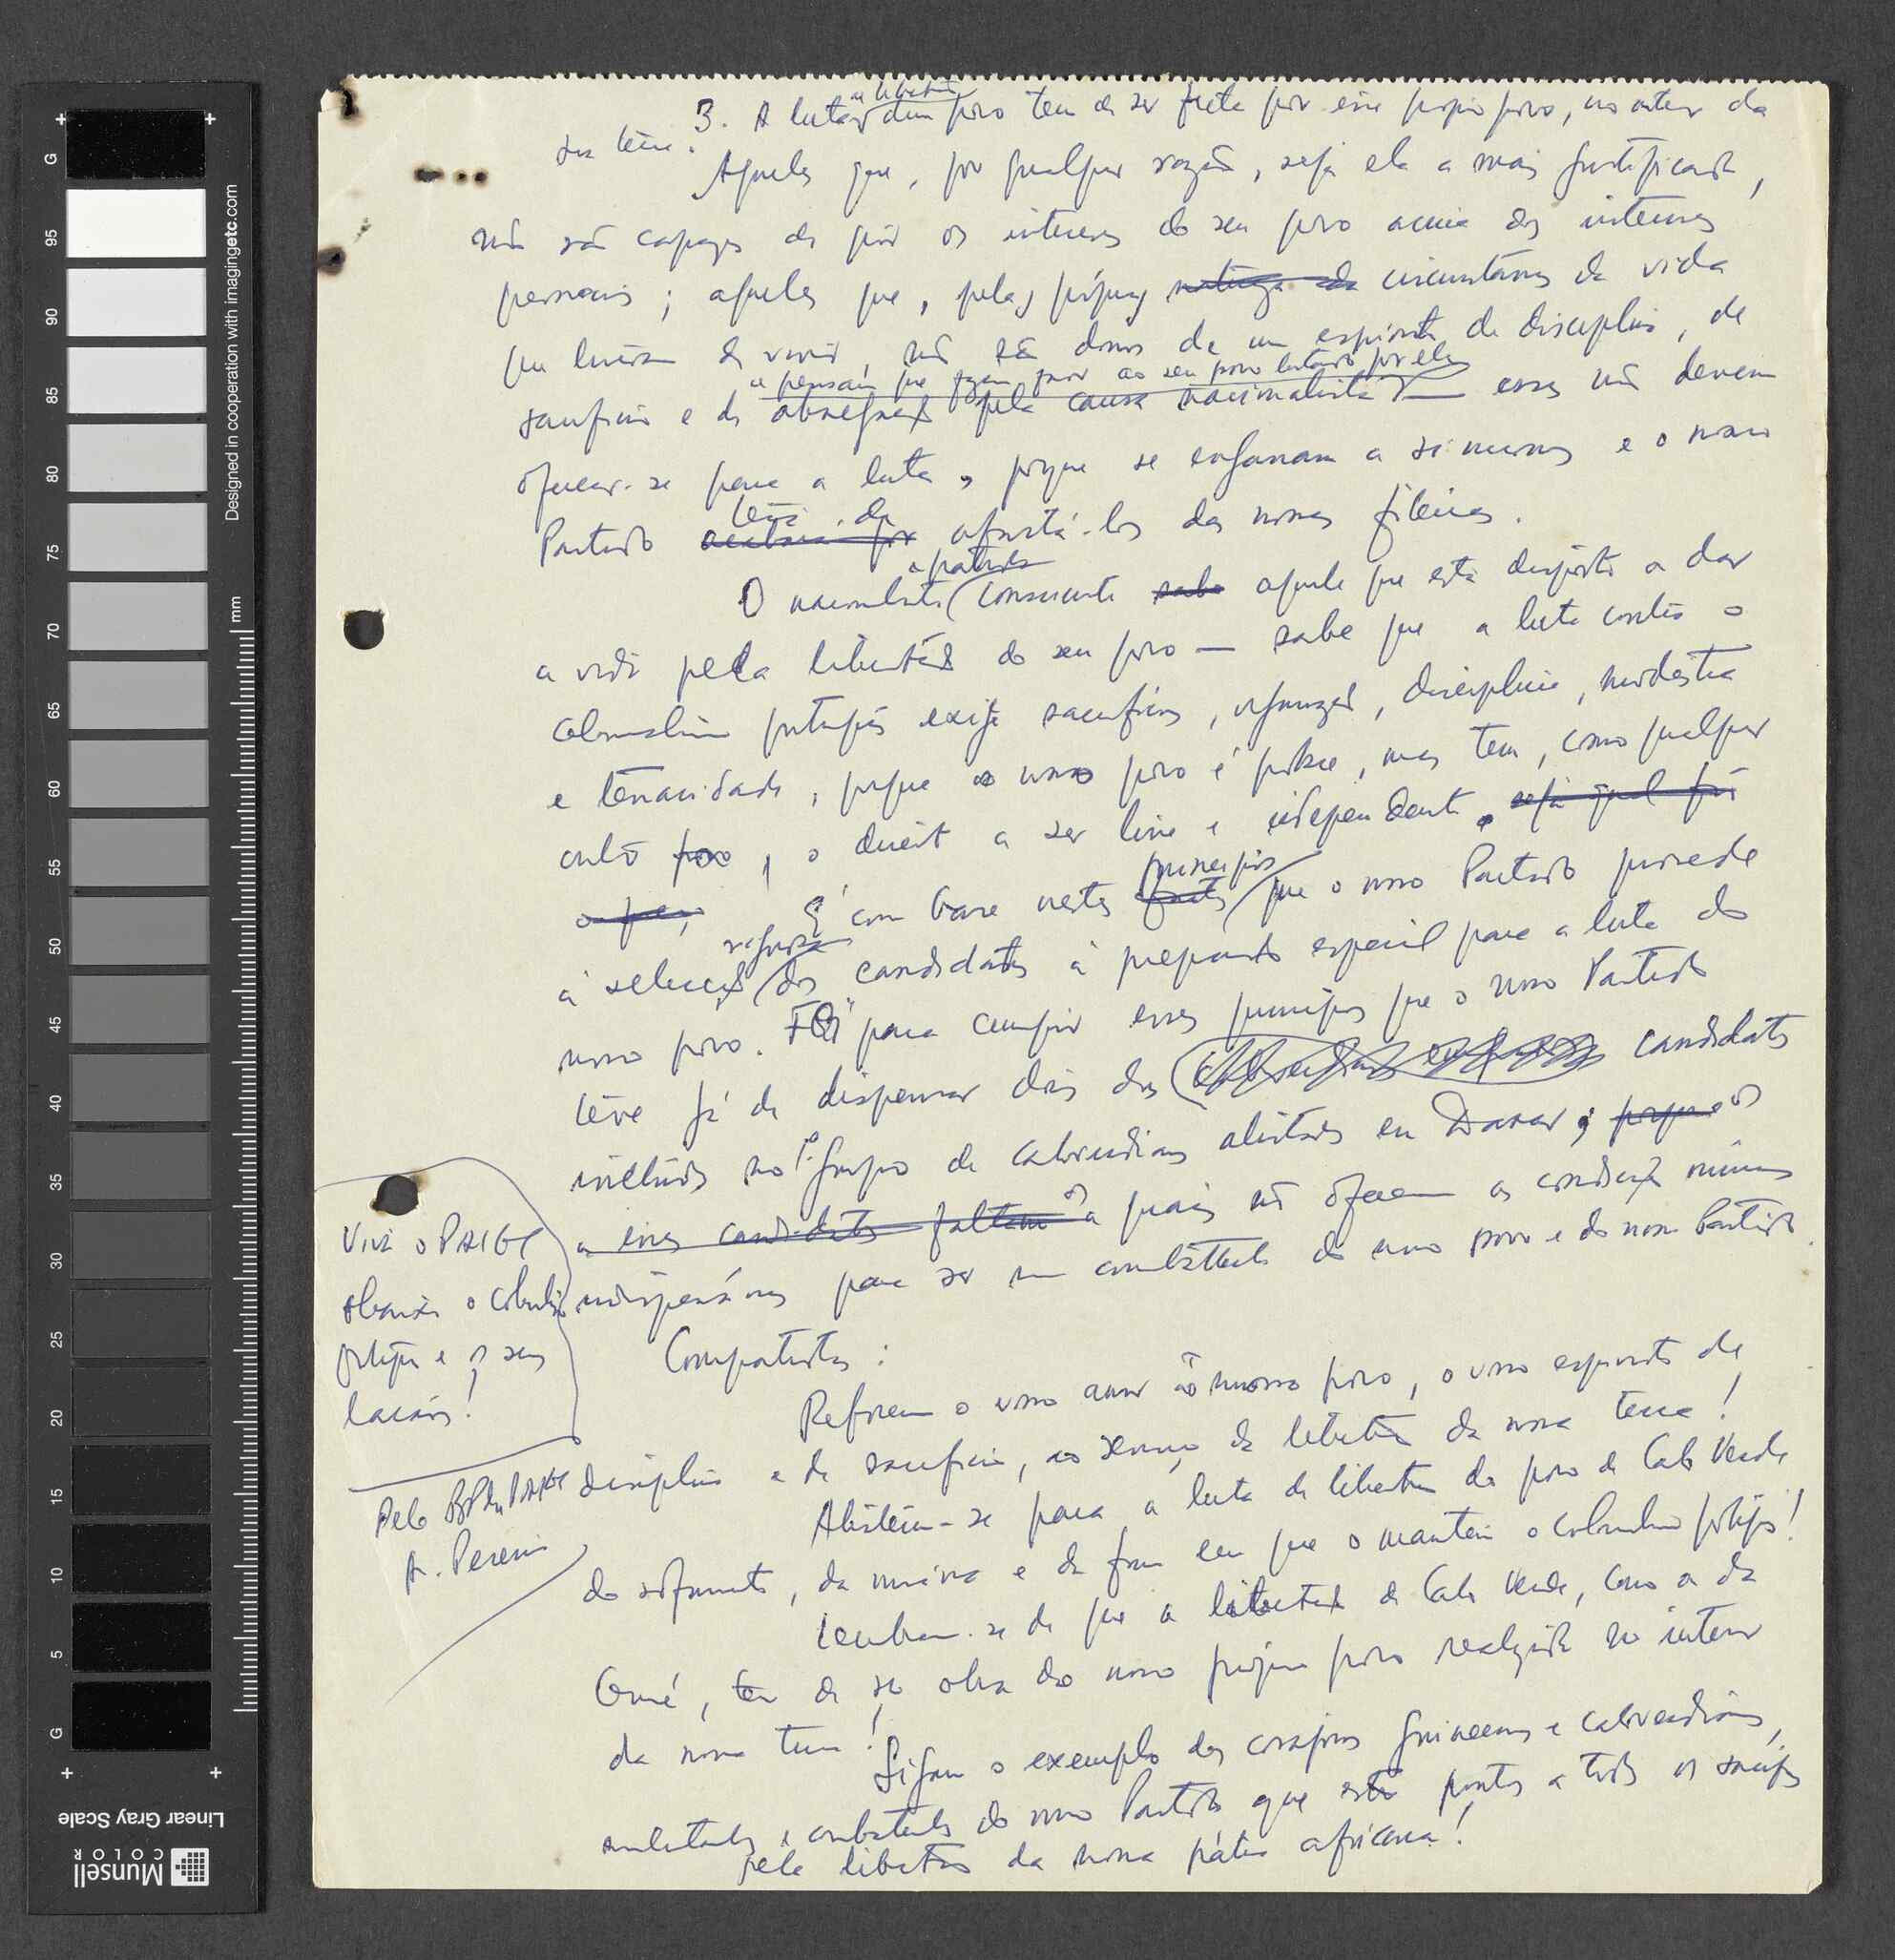 3. A luta dum povo tem de ser feita por esse próprio povo, no interior da
sua terra.
Aqueles que, por qualquer razão, seja ela a mais justificada,
não são capazes de pôr os interesses do seu povo acima dos interesses
pessoais; aqueles que, pelas próprias circunstâncias da vida
que tiveram de viver, não são donos de um espírito de disciplina, de
e pensam que fazem favor ao seu povo lutando por ele
sacrifício e de abnegação pela causa nacionalista — esses não devem
oferecer-se para a luta, porque se enganam a si mesmos e o nosso
Partido terá de afastá-los das nossas fileiras.
O nacionalista consciente aquele que está disposto a dar
a vida pela libertação do seu povo — sabe que a luta contra o
colonialismo português exige sacrifícios, organização, disciplina, modéstia
e tenacidade, porque o nosso povo é pobre, mas tem, como qualquer
outro povo, o direito a ser livre e independente. seja qual for
o preço,
É com base nestes princípios que o nosso Partido procede
à selecção rigorosa dos candidatos à preparação especial para a luta do
nosso povo. Foi para cumprir esses princípios que o nosso Partido
teve já de dispensar dois dos candidatos
incluídos no 1º grupo de caboverdianos alistados em Dakar, porque
a esses candidatos faltam os quais não oferecem as condições mínimas
indispensáveis para ser um combatente do nosso povo e do nosso Partido.
Compatriotas:
Reforcem o vosso amor ao nosso povo, o vosso espírito de
disciplina e de sacrifício, ao serviço da libertação da nossa terra!
Alistem-se para a luta de libertação do povo de Cabo Verde
do sofrimento, da miséria e da fome em que o mantém o colonialismo português!
Lembrem-se de que a libertação de Cabo Verde, como a da
Guiné, tem de ser obra do nosso próprio povo realizada no interior
da nossa terra!
Sigam o exemplo dos corajosos guineenses e caboverdianos,
militantes e combatentes do nosso Partido que estão prontos a todos os sacrifícios
pela libertação da nossa pátria africana!
Viva o PAIGC
Abaixo o colonialismo
português e os seus
lacaios!
Pelo BP do PAIGC
A. Pereira
Designed in cooperation with imagingetc.com
mm
G
95
90
85
80
75
70
65
60
55
50
45
40
35
30
25
20
15
10
5
G
Linear Gray Scale
Munsell
COLOR